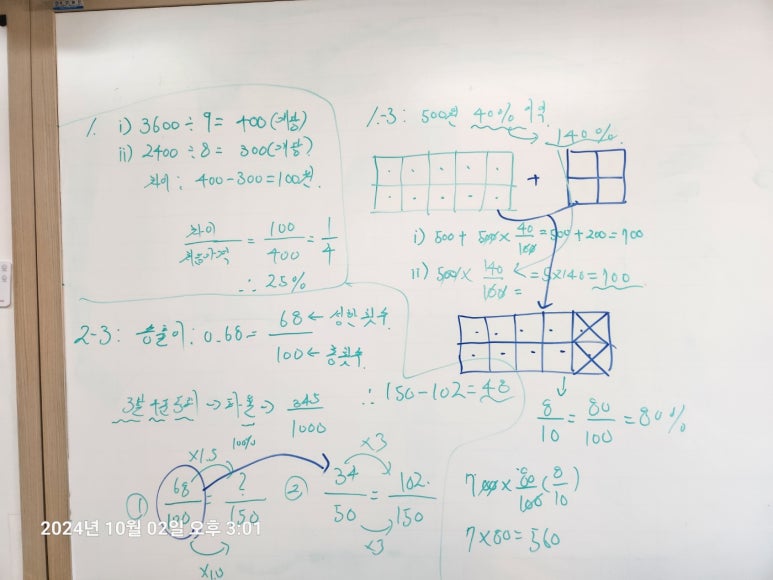 1. i) 3600÷9= 400(개당)
ii) 2400÷8= 300(개당)
차이: 400-300=100원.
차이/처음가격 = 100/400 = 1/4
∴ 25%
1-3: 500원 40% 이익
140%
+
i) 500 + 500 × 40/100 = 500 + 200 = 700
ii) 500 × 140/100 = 5×140 = 700
2-3: 승률이: 0.68 = 68 ← 성한 횟수
100 ← 총횟수
3할 4푼 5리 → 타율 → 345/1000
100%
∴ 150-102=48
8/10 = 80/100 = 80%
① 68/100 = ?/150
×1.5
×10
② 34/50 = 102/150
×3
×3
700 × 80/100 (8/10)
7×80=560
2024년 10월 02일 오후 3:01